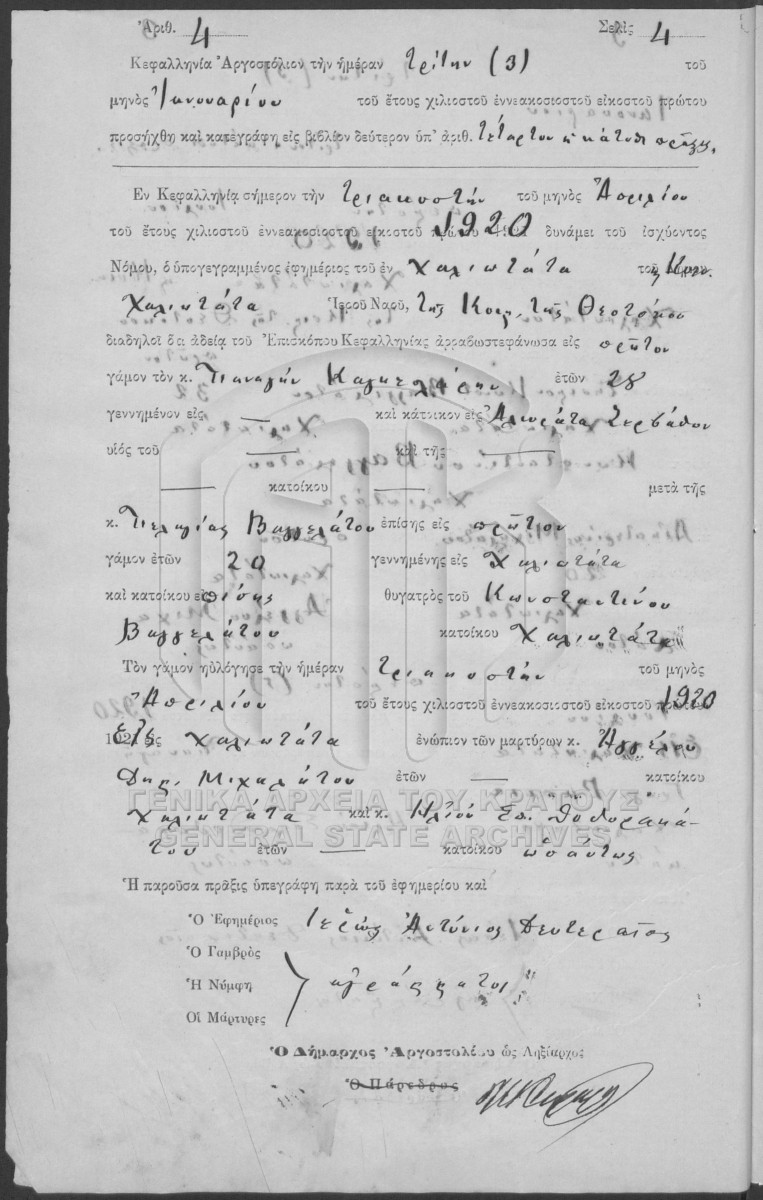 Ἀριθ. 4 Σελὶς 4
Κεφαλληνία Ἀργοστόλιον τὴν ἡμέραν τρίτην (3) τοῦ
μηνὸς Ἰανουαρίου τοῦ ἔτους χιλιοστοῦ ἐννεακοσιοστοῦ εἰκοστοῦ πρώτου
προσήχθη καὶ κατεγράφη εἰς βιβλίον δεύτερον ὑπ' ἀριθ. τέταρτον ἡ κάτωθι πρᾶξις.
Ἐν Κεφαλληνίᾳ σήμερον τὴν τριακοστήν τοῦ μηνὸς Ἀπριλίου
τοῦ ἔτους χιλιοστοῦ ἐννεακοσιοστοῦ εἰκοστοῦ πρώτου 1920 δυνάμει τοῦ ἰσχύοντος
Νόμου, ὁ ὑπογεγραμμένος ἐφημέριος τοῦ ἐν Χαλιωτάτα
Χαλιωτάτα Ἱεροῦ Ναοῦ, τῆς Κοιμ. τῆς Θεοτόκου
διαδηλοῖ ὅτι ἀδείᾳ τοῦ Ἐπισκόπου Κεφαλληνίας ἀρραβωστεφάνωσα εἰς πρῶτον
γάμον τὸν κ. Παναγήν ἐτῶν 28
γεννημένον εἰς — καὶ κάτοικον εἰς Ζερβάθον
υἱὸς τοῦ — καὶ τῆς —
— κατοίκου — μετὰ τῆς
κ. Πελαγίας Βαγγελάτου ἐπίσης εἰς πρῶτον
γάμον ἐτῶν 20 γεννημένης εἰς Χαλιωτάτα
καὶ κατοίκου ἐπίσης θυγατρὸς τοῦ Κωνσταντίνου
Βαγγελάτου κατοίκου Χαλιωτάτα
Τὸν γάμον ηὐλόγησε τὴν ἡμέραν τριακοστήν τοῦ μηνὸς
Ἀπριλίου τοῦ ἔτους χιλιοστοῦ ἐννεακοσιοστοῦ εἰκοστοῦ πρώτου 1920
εἰς Χαλιωτάτα ἐνώπιον τῶν μαρτύρων κ. Ἀγγέλου
Δημ. Μιχαλάτου ἐτῶν — κατοίκου
Χαλιωτάτα καὶ κ. Ἠλίου Σπ. Θυδωρακά-
του ἐτῶν — κατοίκου ὡσαύτως
Ἡ παροῦσα πρᾶξις ὑπεγράφη παρὰ τοῦ ἐφημερίου καὶ
Ὁ Ἐφημέριος Ἱερεὺς Ἀντώνιος Δευτεραῖος
Ὁ Γαμβρὸς
Ἡ Νύμφη ἀγράμματοι
Οἱ Μάρτυρες
Ὁ Δήμαρχος Ἀργοστολίου ὡς Ληξίαρχος
Ὁ Πάρεδρος
ΓΕΝΙΚΑ ΑΡΧΕΙΑ ΤΟΥ ΚΡΑΤΟΥΣ
GENERAL STATE ARCHIVES